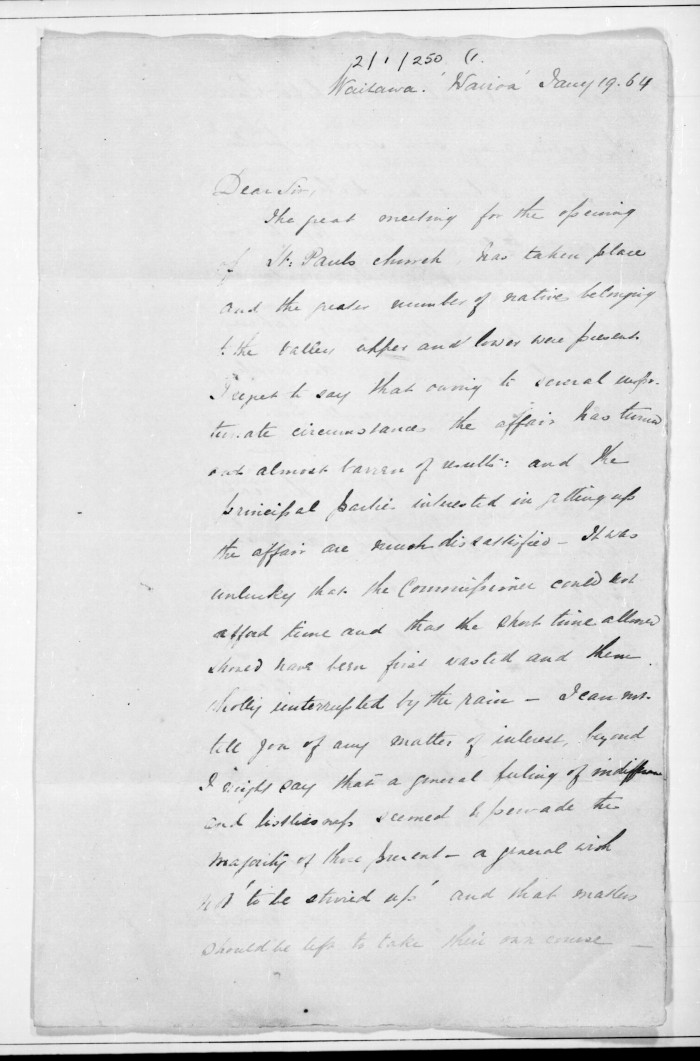 2/1/250 (1.
Waitawa. 'Wairoa' Jany 19. 64
Dear Sir,
The great meeting for the opening
of St. Pauls church, has taken place
and the greater number of natives belonging
to the valley upper and lower were present.
I regret to say that owing to several unfor-
tunate circumstances the affair has turned
out almost barren of results: and the
principal parties interested in getting up
the affair are much dissatisfied - It was
unlucky that the Commissioner could not
afford time and that the short time allowed
should have been first wasted and then
wholly interrupted by the rain - I can not
tell you of any matter of interest, beyond
I might say that a general feeling of indifference
and listlessness seemed to pervade the
majority of those present - a general wish
not 'to be stirred up' and that matters
should be left to take their own course -